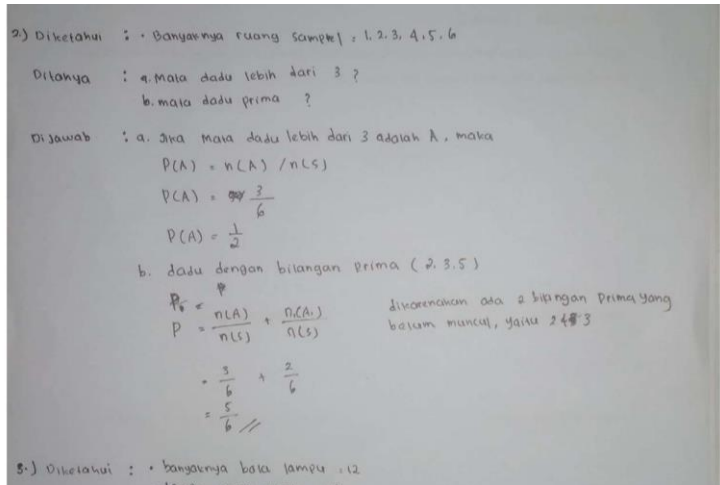 2.) Diketahui : • Banyaknya ruang sampel = 1, 2, 3, 4, 5, 6
Ditanya : a. Mata dadu lebih dari 3 ?
b. mata dadu prima ?
Dijawab : a. Jika mata dadu lebih dari 3 adalah A, maka
P(A) = n(A) / n(S)
P(A) = 3/6
P(A) = 1/2
b. dadu dengan bilangan prima (2, 3, 5)
P = n(A)/n(S) + n(A)/n(S)
dikarenakan ada 2 bilangan prima yang
belum muncul, yaitu 2 & 3
= 3/6 + 2/6
= 5/6 //
3.) Diketahui : • banyaknya bola lampu = 12